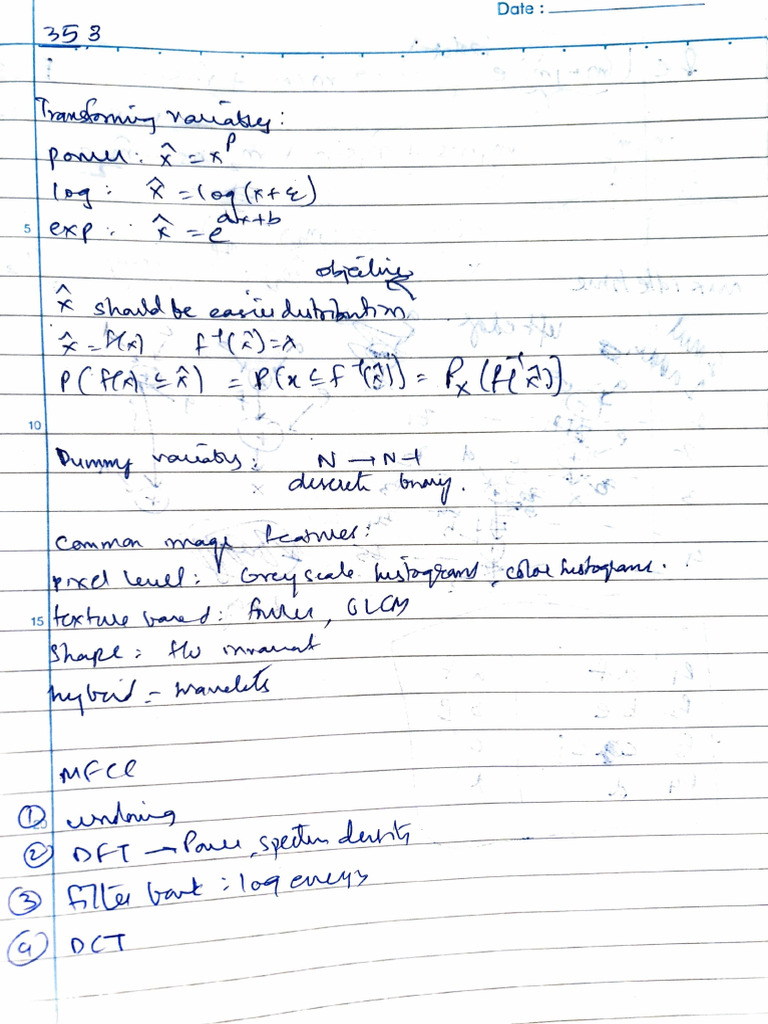 Date :
353
Transforming variables :
power : x̂ = x^p
log : x̂ = log (x+ε)
5
exp : x̂ = e^(ax+b)
objective
x̂ should be easier distribution
x̂ = f(x) f⁻¹(x̂) = x
P( f(x) ≤ x̂ ) = P(x ≤ f⁻¹(x̂)) = Pₓ (f⁻¹(x̂))
10
Dummy variables : N → N-1
discrete binary.
Common image features :
pixel level : Greyscale histograms, color histograms.
15
texture based : fourier, GLCM
Shape : Hu invariant
hybrid - wavelets
MFCC
① windowing
② DFT → Power spectrum density
③ filter bank : log energy
④ DCT